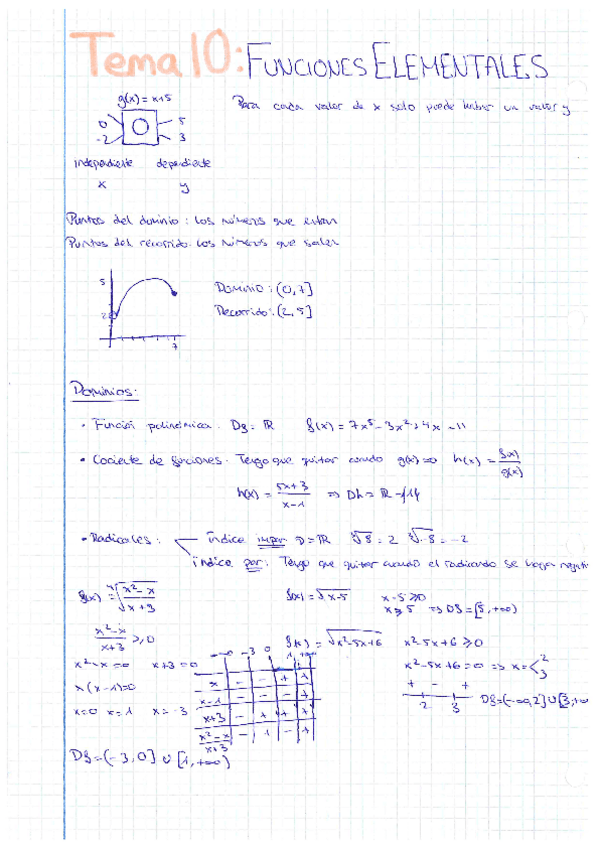 Tema 10: FUNCIONES ELEMENTALES
g(x) = x+5
Para cada valor de x solo puede haber un valor y
0 5
-2 3
independiente dependiente
x y
Puntos del dominio: los números que entran
Puntos del recorrido: los números que salen
5
2
7
Dominio: (0,7]
Recorrido: (2,5]
Dominios:
• Función polinómica. Df = ℝ f(x) = 7x⁵ - 3x² + 4x - 11
• Cociente de funciones. Tengo que quitar cuando g(x)=0 h(x) = f(x)/g(x)
h(x) = 5x+3/x-1 ⇒ Dh = ℝ - {1}
• Radicales: Índice impar D = ℝ ∛8 = 2 ∛-8 = -2
índice par: Tengo que quitar cuando el radicando se haga negati
f(x) = √x²-x/√x+3 f(x) = √x-5 x-5 ≥ 0
x ≥ 5 ⇒ Df = [5, +∞)
x²-x/x+3 ≥ 0 f(x) = √x²-5x+6 x²-5x+6 ≥ 0
x²-x = 0 x+3 = 0 x²-5x+6 = 0 ⇒ x = 2 3
x(x-1)=0
x=0 x=1 x=-3
-∞ -3 0 1 +∞
x - - + +
x-1 - - - +
x+3 - + + +
x²-x/x+3 - + - +
+ - +
2 3
Df = (-∞,2] ∪ [3,+∞
Df = (-3,0] ∪ [1,+∞)